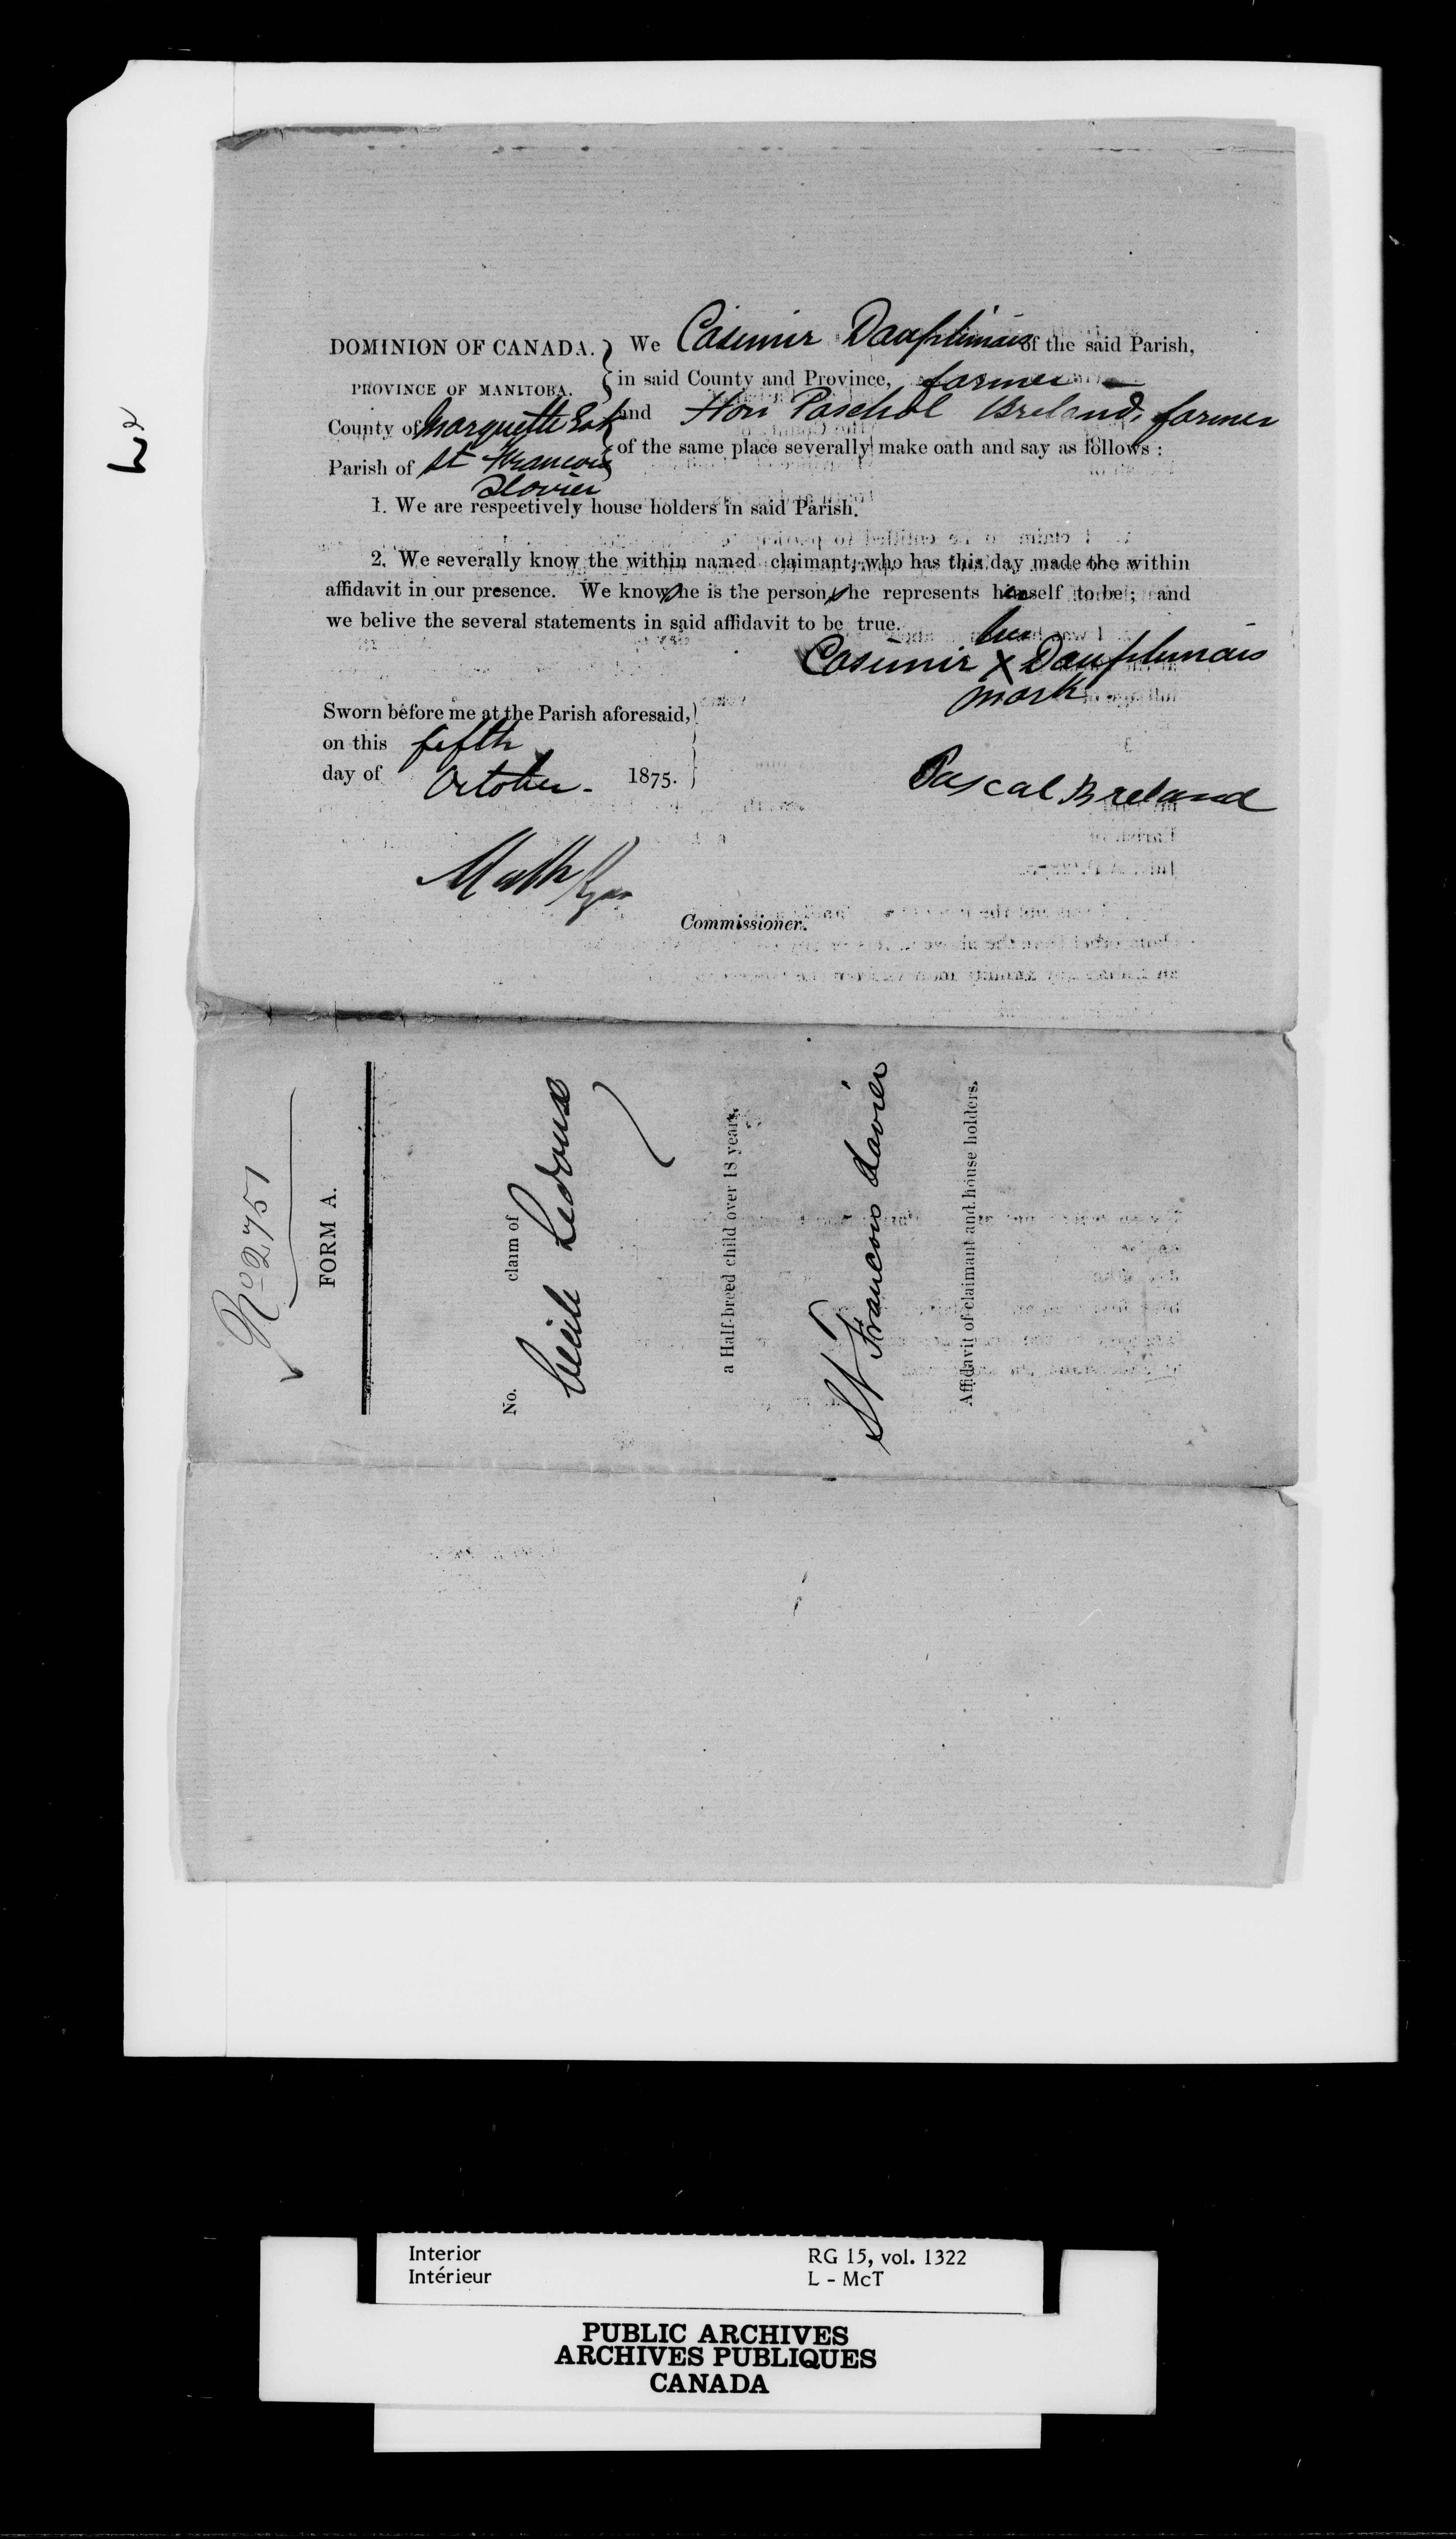 DOMINION OF CANADA.
PROVINCE OF MANITOBA.
County of Marquette East
Parish of St Francois
Xavier
We Casimir Dauphinais of the said Parish,
in said County and Province, farmer
and Hon Paschal Breland, farmer
of the same place severally make oath and say as follows :
1. We are respectively house holders in said Parish.
2. We severally know the within named claimant, who has this day made the within
affidavit in our presence. We know she is the person she represents herself to be ; and
we belive the several statements in said affidavit to be true.
his
Casimir X Dauphinais
mark
Sworn before me at the Parish aforesaid,
on this fifth
day of October - 1875.
Pascal Breland
Math Ryan
Commissioner.
No 2751
FORM A.
No. claim of
Cecile Ledoux
a Half-breed child over 18 years.
St Francois Xavier
Affidavit of claimant and house holders.
Interior
Intérieur
RG 15, vol. 1322
L - McT
PUBLIC ARCHIVES
ARCHIVES PUBLIQUES
CANADA